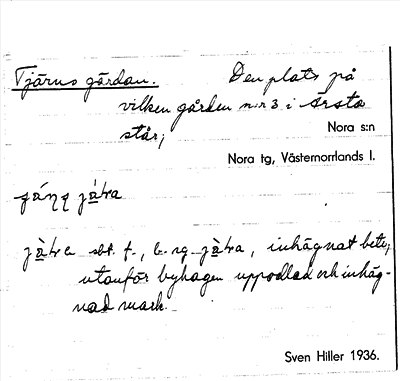 Tjärns gärdan. Den plats på
vilken gården n:r 3 i Årsta
står;
Nora s:n
Nora tg, Västernorrlands l.
jàra sbt. f., b. sg. jàra, inhägnat bete;
utanför byhagen uppodlad och inhäg-
nad mark.
Sven Hiller 1936.